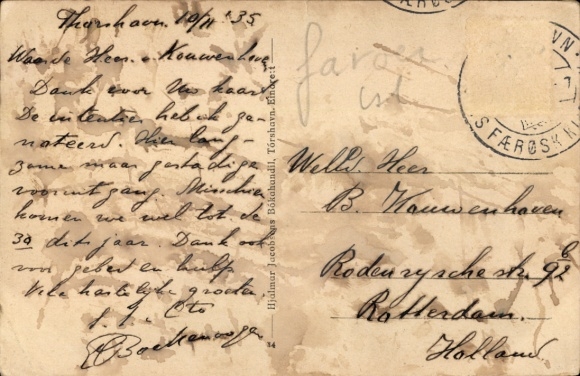 Thorshavn. 10/11 '35
Waarde Heer. Kouwenhoven
Dank voor Uw kaart
De intenties heb ik ge-
noteerd. Hier lang-
zame maar gestadige
vooruitgang. Misschien
komen we wel tot de
30 dit jaar. Dank ook
voor gebed en hulp
Vele hartelijke groeten.
Boekenoogen
Hjalmar Jacobsens Bókahandil, Tórshavn. Eineret
34
faroer
isl
FÆRØSK
S FÆRØSK
Weled. Heer
B. Kouwenhoven
Rodenrysschestr. 92 b
Rotterdam.
Holland.